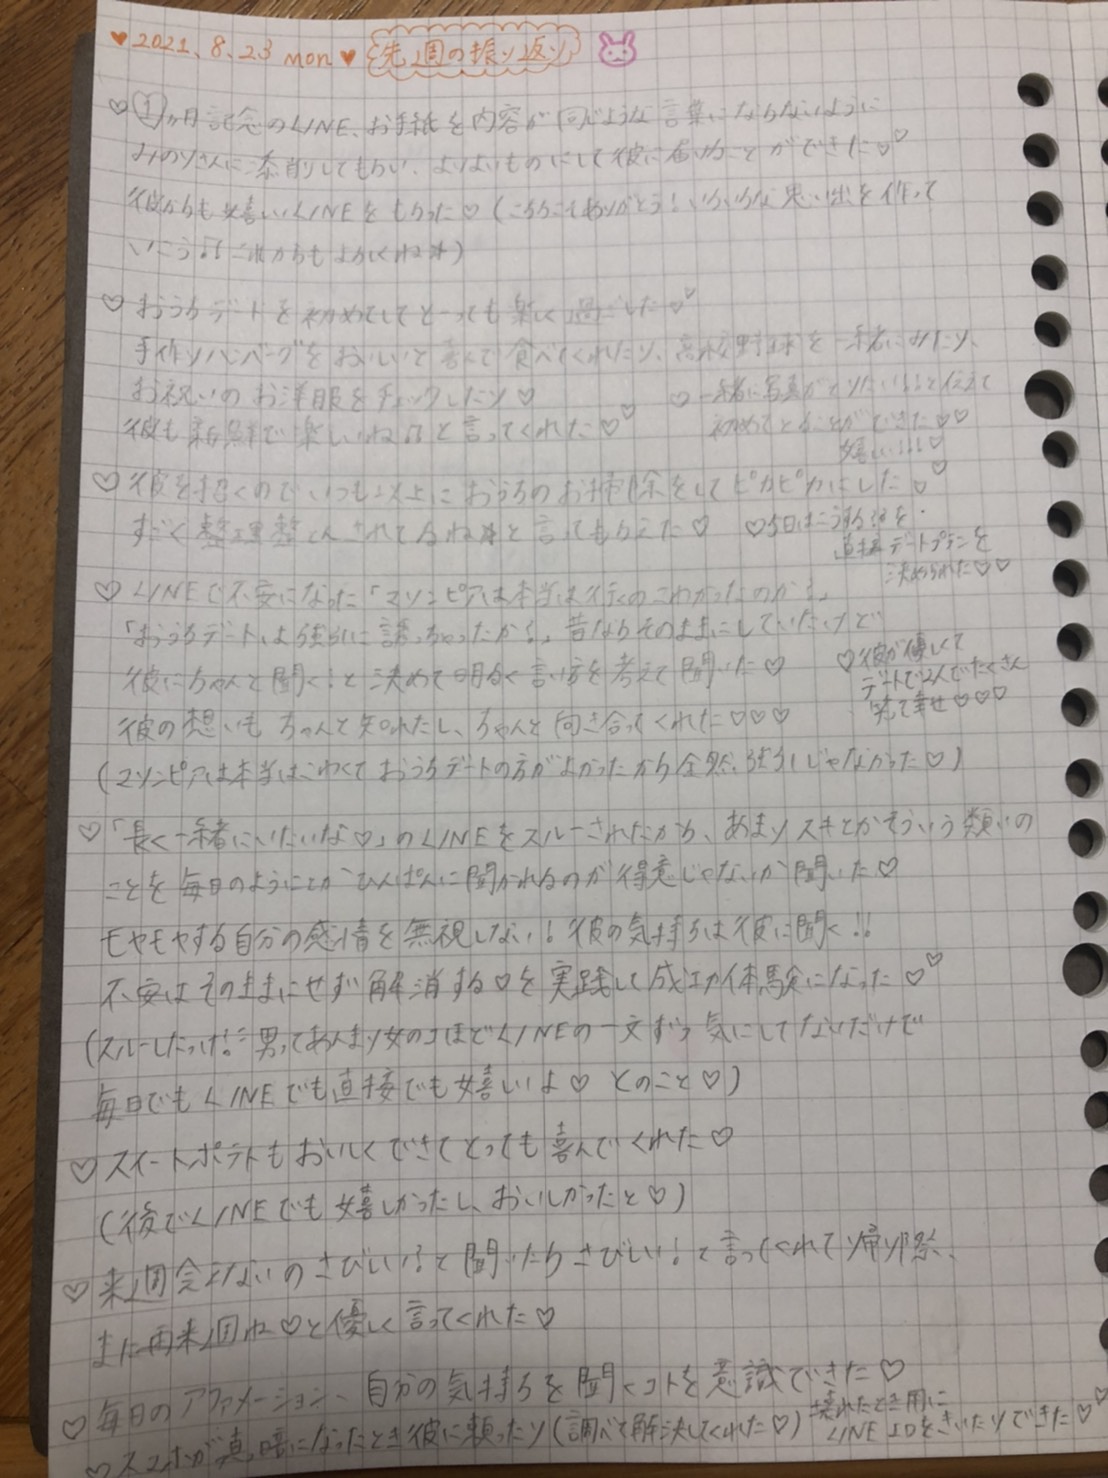 ♥2021.8.23 mon♥ 先週の振り返り
♡①ヶ月記念のLINE、お手紙を内容が同じような言葉にならないように
みのりさんに添削してもらい、よりよいものにして彼に届けることができた♡♡
彼からも嬉しいLINEをもらった♡(こちらこそありがとう!いろいろな思い出を作って
いこう♫これからもよろしくね☆)
♡おうちデートを初めてしてとっても楽しく過ごした♡♡
手作りハンバーグをおいしいと喜んで食べてくれたり、高校野球を一緒にみたり、
お祝いのお洋服をチェックしたり♡
彼も新鮮で楽しいね♫と言ってくれた♡♡
♡一緒に写真がとりたい!!と伝えて
初めてとることができた♡♡
嬉しい!!!♡
♡彼を招くのでいつも以上におうちのお掃除をしてピカピカにした♡♡
すごく整理整とんされてるね☆と言ってもらえた♡
♡今日はこうする を
直接デートプランを
決められた♡♡
♡LINEで不安になった「マリンピアは本当は行くのこわかったのか?」
「おうちデート、より強引に誘っちゃったか?」昔ならそのままにしていたけど
彼にちゃんと聞く!と決めて明るく言い方を考えて聞いた♡
彼の想いもちゃんと知れたし、ちゃんと向き合ってくれた♡♡♡
(マリンピアは本当はこわくておうちデートの方がよかったから全然、強引じゃなかった♡)
♡彼が優しくて
デートで2人でたくさん
笑て幸せ♡♡♡
♡「長く一緒にいたいな♡」のLINEをスルーされたから、あまりスキとかそういう類いの
ことを毎日のようにとかひんぱんに聞かれるのが得意じゃないか聞いた♡
モヤモヤする自分の感情を無視しない!彼の気持ちは彼に聞く!!
不安はそのままにせず解消する♡を実践して成功体験になった♡♡
(スルーしたっけ!?男ってあんまり女のコほどLINEの一文ずつ気にしてないだけで
毎日でもLINEでも直接でも嬉しいよ♡とのこと♡)
♡スイートポテトもおいしくできてとっても喜んでくれた♡
(後でLINEでも嬉しかったし、おいしかったと♡)
♡来週会えないのさびしい?と聞いたらさびしい!と言ってくれて帰り際、
また再来週ね♡と優しく言ってくれた♡
♡毎日のアファメーション、自分の気持ちを聞くコトを意識できた♡
♡スマホが真っ暗になったとき彼に頼ったり(調べて解決してくれた♡)
壊れたとき用に
LINE IDをきいたりできた♡♡